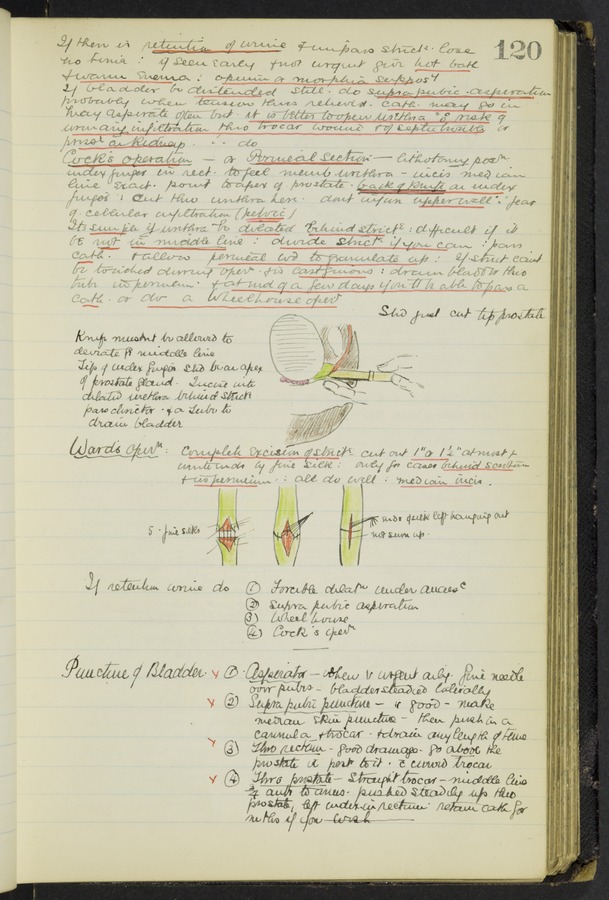 120
If there is retention of urine & impass strict. lose
no time : if seen early & not urgent give hot bath
& warm enema : opium or morphia supposy
If bladder be distended still do suprapubic aspiration
probably when tension thus relieved cath. may go in
may aspirate often but it is better to open urethra risk of
urinary infiltration thro trocar wound & of septic trouble is
do
Cock's operation — or Perineal Section — lithotomy posn
index finger in rect. to feel memb. urethra — incis median
line exact. point to apex of prostate. back of knife on index
finger : cut thro urethra here. dont injure upper wall : fear
of cellular infiltration (pelvic)
Its simple if urethra be dilated behind strict : difficult if it
be not in middle line : divide strict if you can : pass
cath. & allow perineal wd to granulate up : if strict cant
be touched during opern tis cartilaginous : drain bladder thro
tube in perineum & at end of a few days you'll be able to pass a
cath. or do a Wheelhouse opern
Shd just cut tip prostate
Knife mustnt be allowed to
deviate fr middle line
Tip of index finger shd be on apex
of prostate gland. Incise into
dilated urethra behind strict
pass director & a tube to
drain bladder
Ward's opern: complete excision of strict cut out 1" or 1½" at most &
unite ends by fine silk : only for cases behind scrotum
& in perineum : all do well : median incis.
5 fine silks
ends quite left hanging out
not sewn up
If retention urine do ① Forcible dilatn under anaesc
② Supra pubic aspiration
③ Wheelhouse
④ Cock's opern
Puncture of Bladder ① Aspirator — when v urgent only. Fine needle
over pubis — bladder steadied laterally
② Supra pubic puncture — is good — make
median skin puncture — then push in a
cannula & trocar & drain any length of time
③ Thro rectum — good drainage. Go above the
prostate & post to it. c curved trocar
④ Thro prostate — Straight trocar — middle line
¾ ant to anus. pushed steadily up thro
prostate, left index in rectum retain cath for
mths if you wish